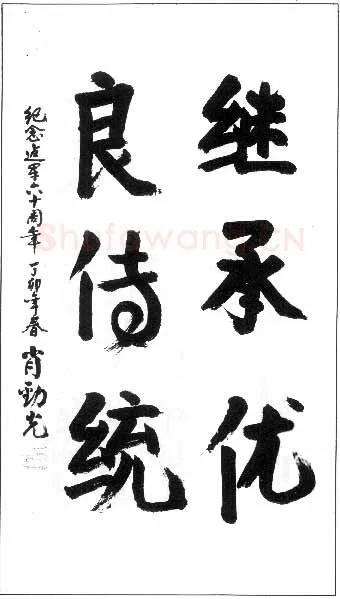 继承优
良传统
纪念建军六十周年 丁卯年春 肖劲光
Shufawang.CN